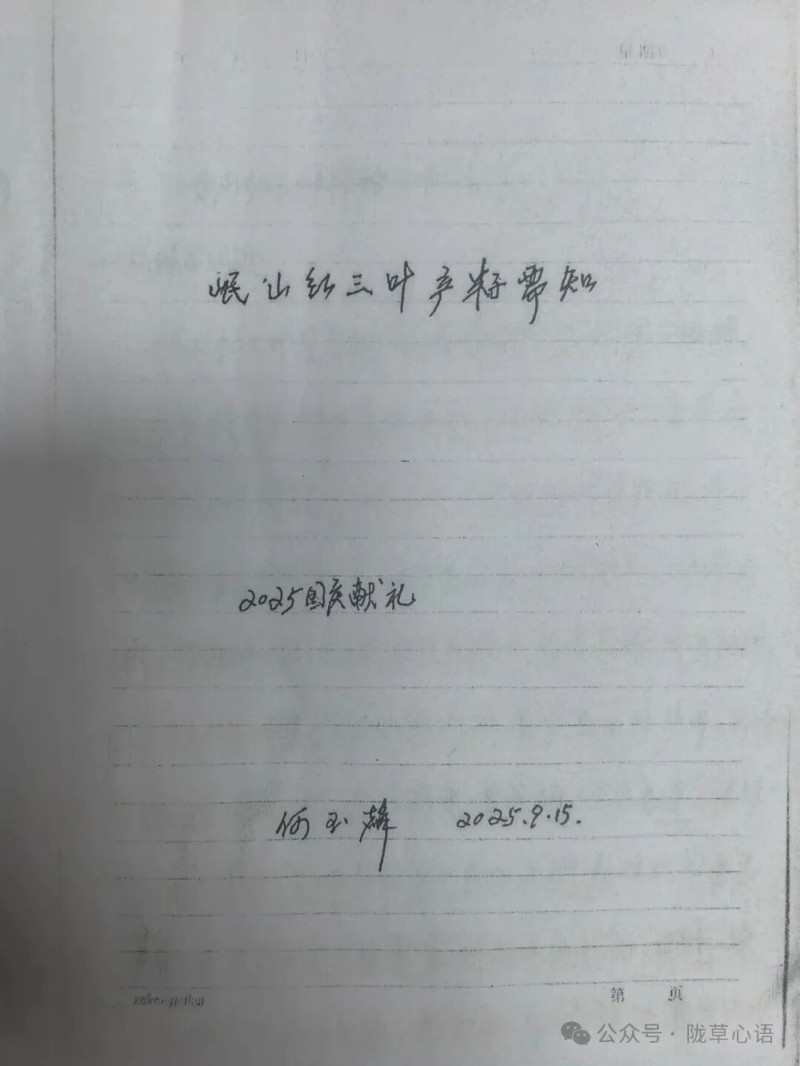 星期
岷山红三叶产籽需知
2025国庆献礼
何玉麟 2025.9.15.
第 页
公众号·陇草心语